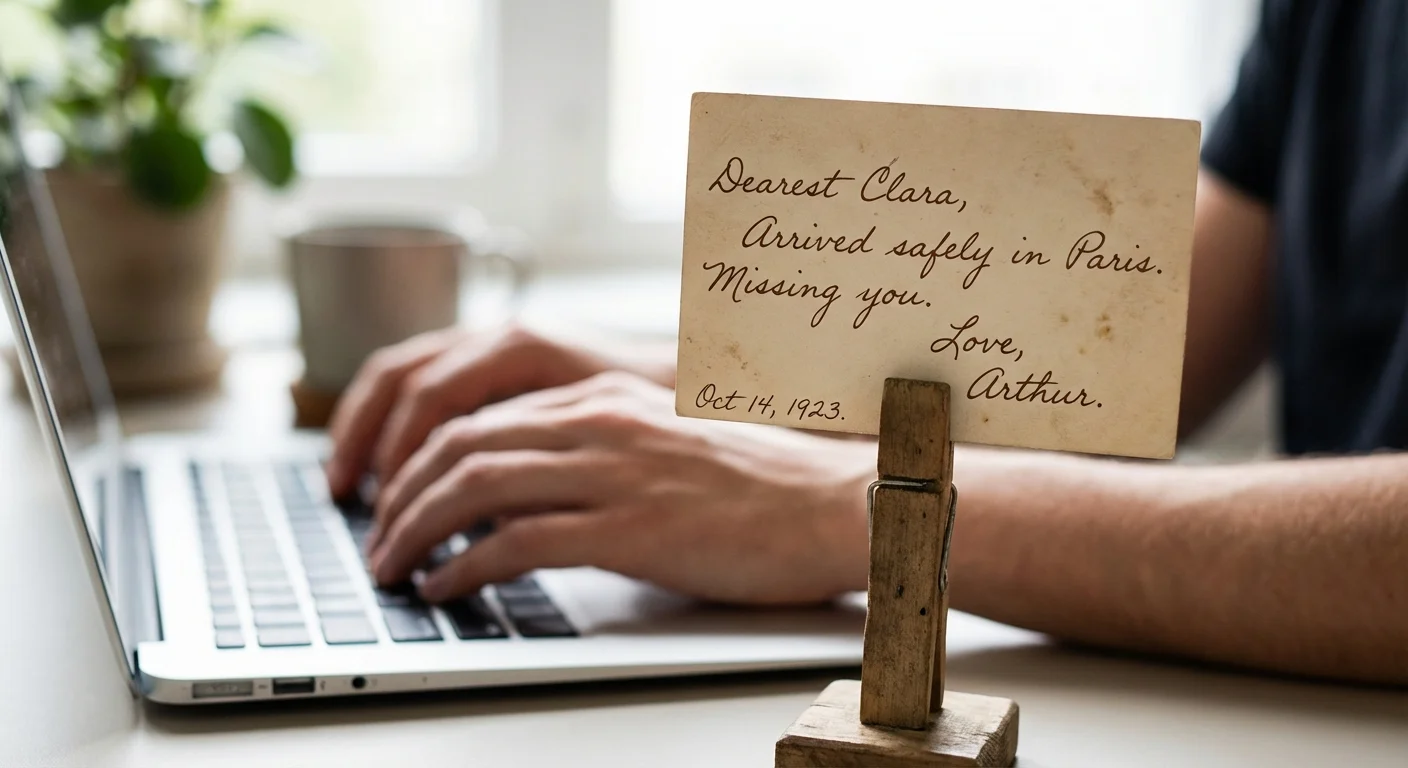 Dearest Clara,
Arrived safely in Paris.
Missing you.
Love,
Arthur.
Oct 14, 1923.